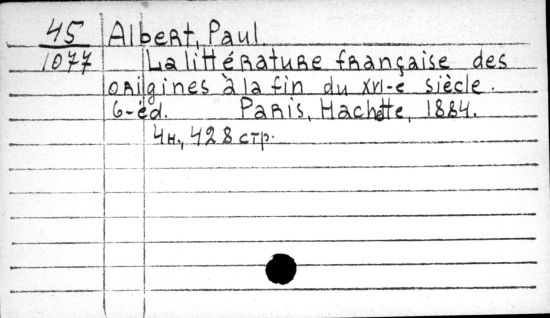 45 Albert, Paul
1077 La littérature française des
origines à la fin du XVI-e siècle.
6-éd. Paris, Hachette, 1884.
4н., 428 стр.